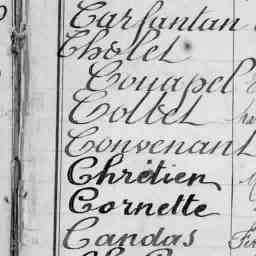 Carfantan
Cholet
Couapel
Collet
Couvenant
Chrétien
Cornette
Candas